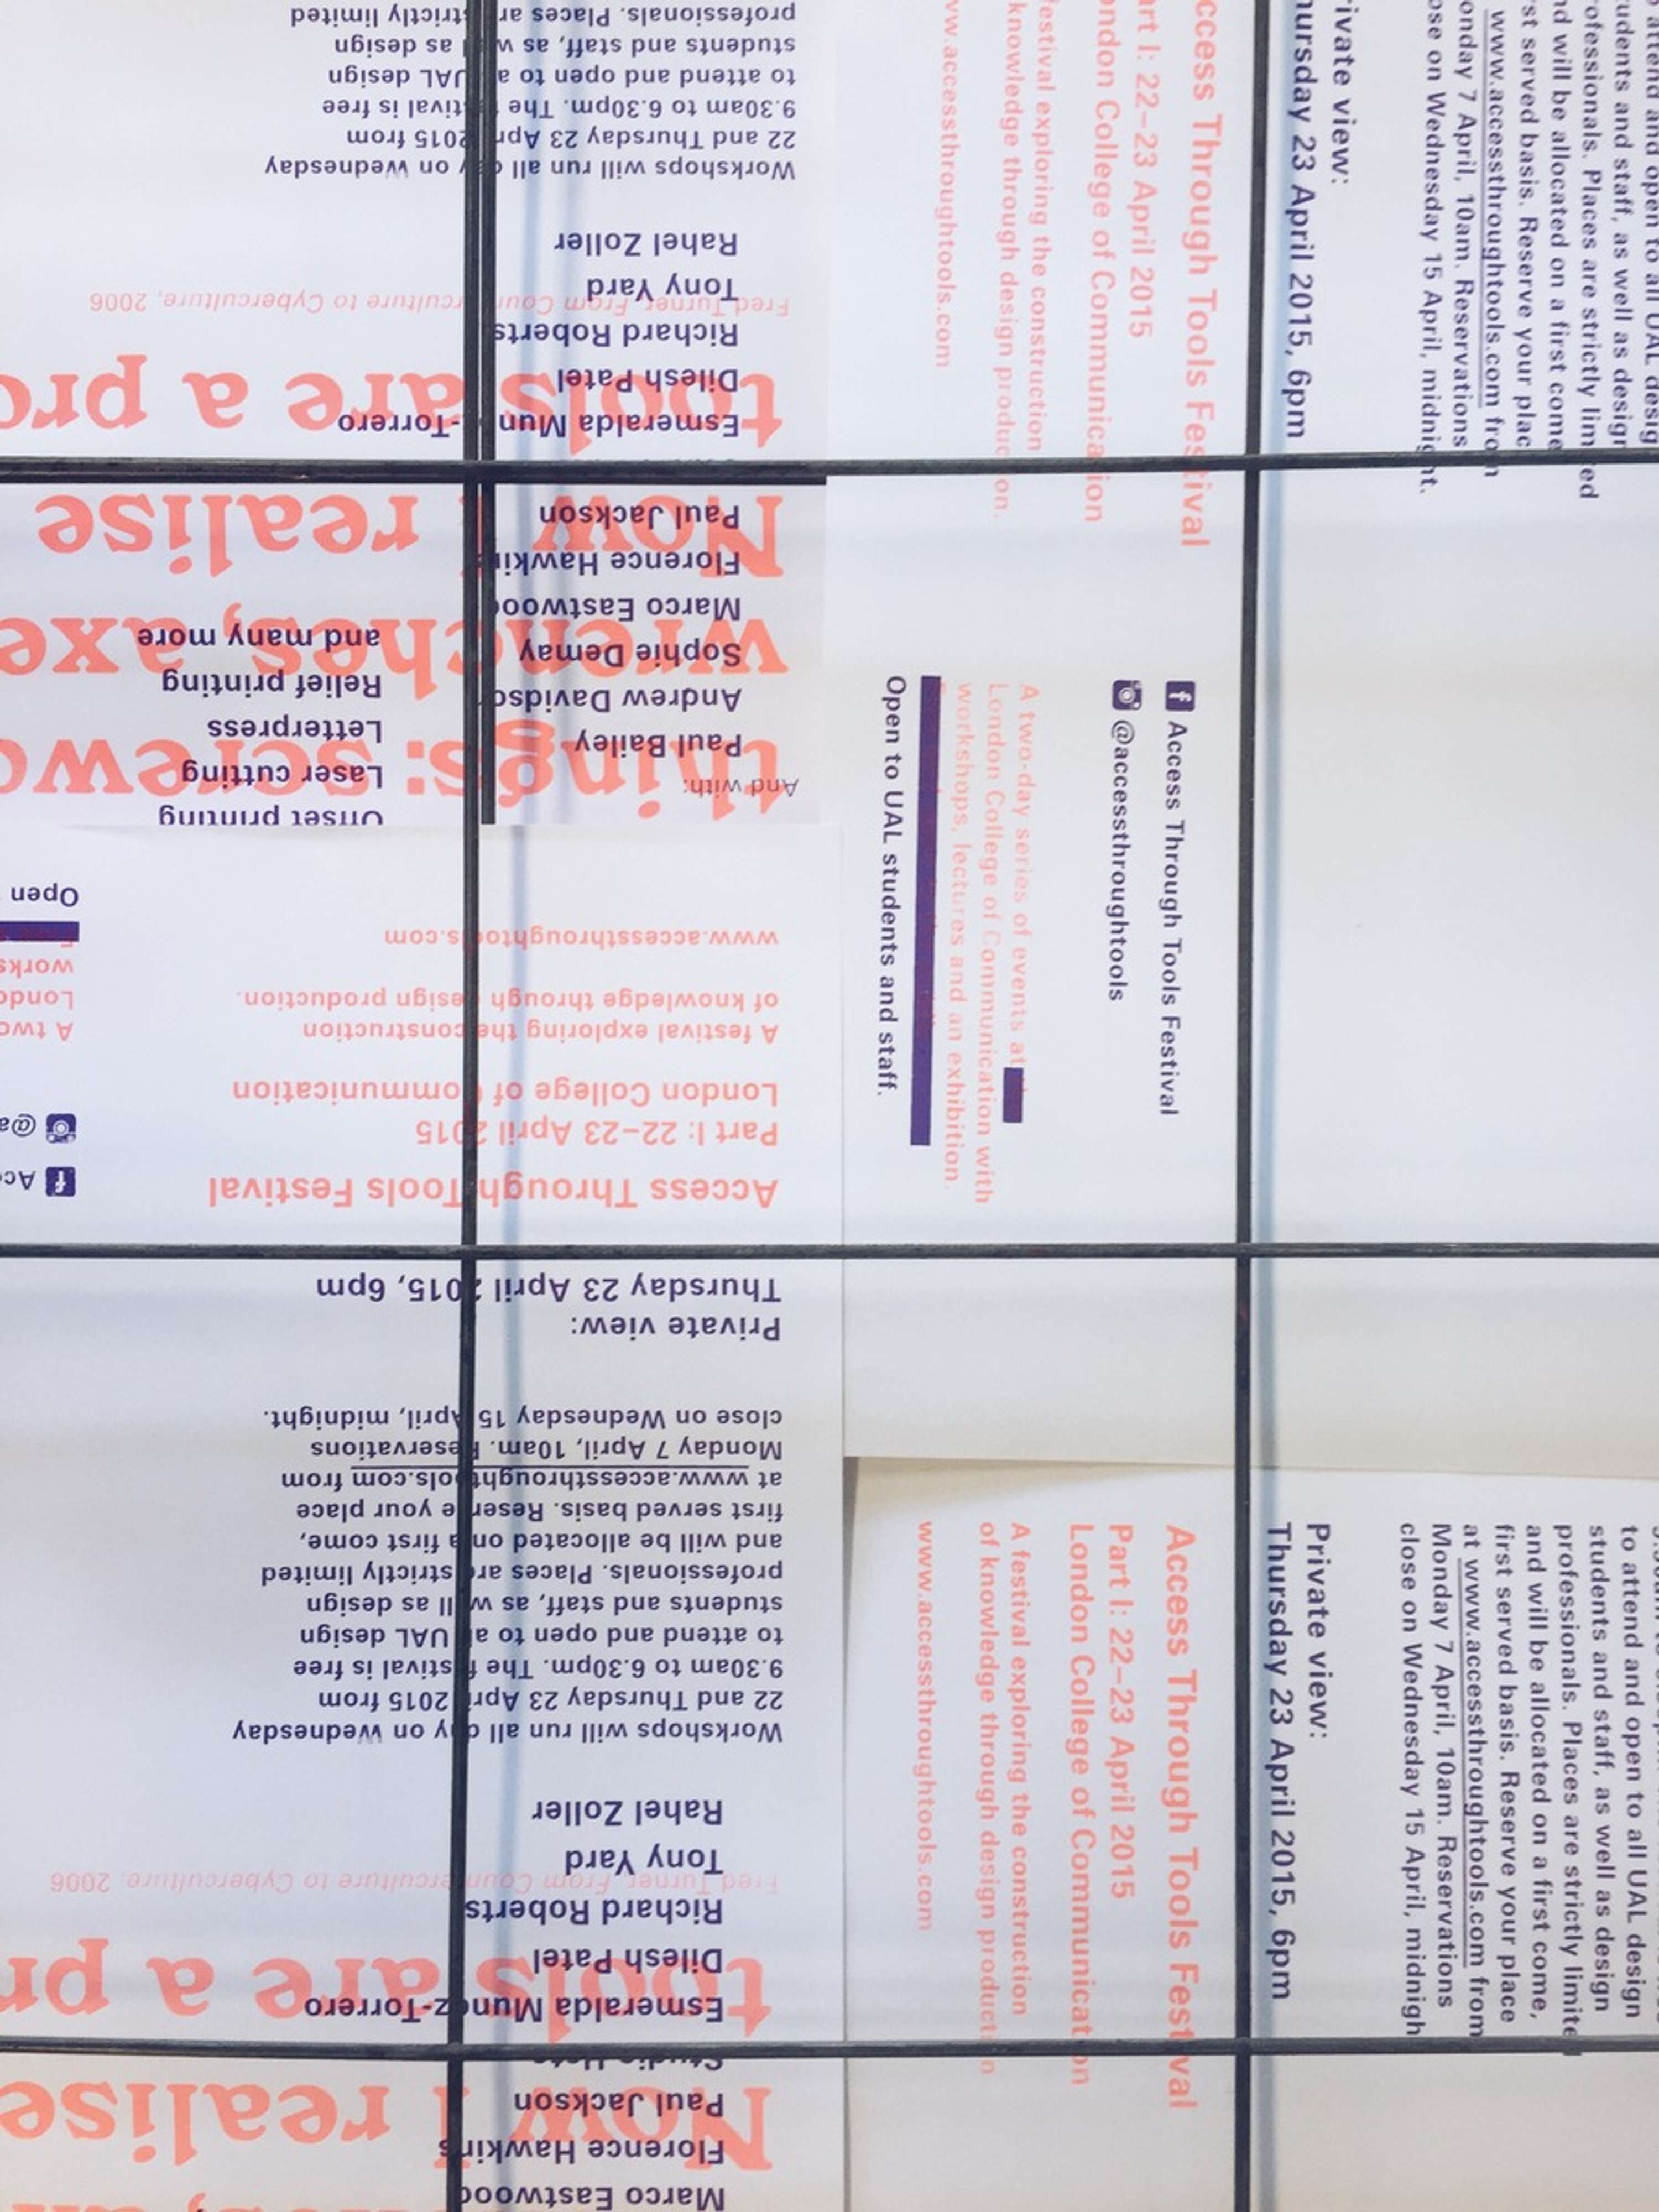 Marco Eastwood
Florence Hawkins
Now I realise
Paul Jackson
Studio Hato
Esmeralda Munoz-Torrero
tools are a
Dilesh Patel
Richard Roberts
Fred Turner, From Counterculture to Cyberculture, 2006
Tony Yard
Rahel Zoller
Workshops will run all day on Wednesday
22 and Thursday 23 April 2015 from
9.30am to 6.30pm. The festival is free
to attend and open to all UAL design
students and staff, as well as design
professionals. Places are strictly limited
and will be allocated on a first come,
first served basis. Reserve your place
at www.accessthroughtools.com from
Monday 7 April, 10am. Reservations
close on Wednesday 15 April, midnight.
Private view:
Thursday 23 April 2015, 6pm
Access Through Tools Festival
Part I: 22–23 April 2015
London College of Communication
A festival exploring the construction
of knowledge through design production.
www.accessthroughtools.com
A two
Open
Offset printing
Laser cutting
Letterpress
Relief printing
and many more
And with:
things:
Paul Bailey
Andrew Davidson
Sophie Demay
wrenches,
Marco Eastwood
Florence Hawkins
Now I realise
Paul Jackson
Esmeralda Munoz-Torrero
tools are a
Dilesh Patel
Richard Roberts
Fred Turner, From Counterculture to Cyberculture, 2006
Tony Yard
Rahel Zoller
Workshops will run all day on Wednesday
22 and Thursday 23 April 2015 from
9.30am to 6.30pm. The festival is free
to attend and open to all UAL design
students and staff, as well as design
professionals. Places are strictly limited
to attend and open to all UAL design
students and staff, as well as design
professionals. Places are strictly limited
and will be allocated on a first come
first served basis. Reserve your place
www.accessthroughtools.com from
Monday 7 April, 10am. Reservations
close on Wednesday 15 April, midnight.
Private view:
Thursday 23 April 2015, 6pm
Access Through Tools Festival
Part I: 22–23 April 2015
London College of Communication
festival exploring the construction
knowledge through design production.
www.accessthroughtools.com
Access Through Tools Festival
@accessthroughtools
A two-day series of events at
London College of Communication with
workshops, lectures and an exhibition.
Open to UAL students and staff.
to attend and open to all UAL design
students and staff, as well as design
professionals. Places are strictly limite
and will be allocated on a first come,
first served basis. Reserve your place
at www.accessthroughtools.com from
Monday 7 April, 10am. Reservations
close on Wednesday 15 April, midnigh
Private view:
Thursday 23 April 2015, 6pm
Access Through Tools Festival
Part I: 22–23 April 2015
London College of Communication
A festival exploring the construction
of knowledge through design production
www.accessthroughtools.com